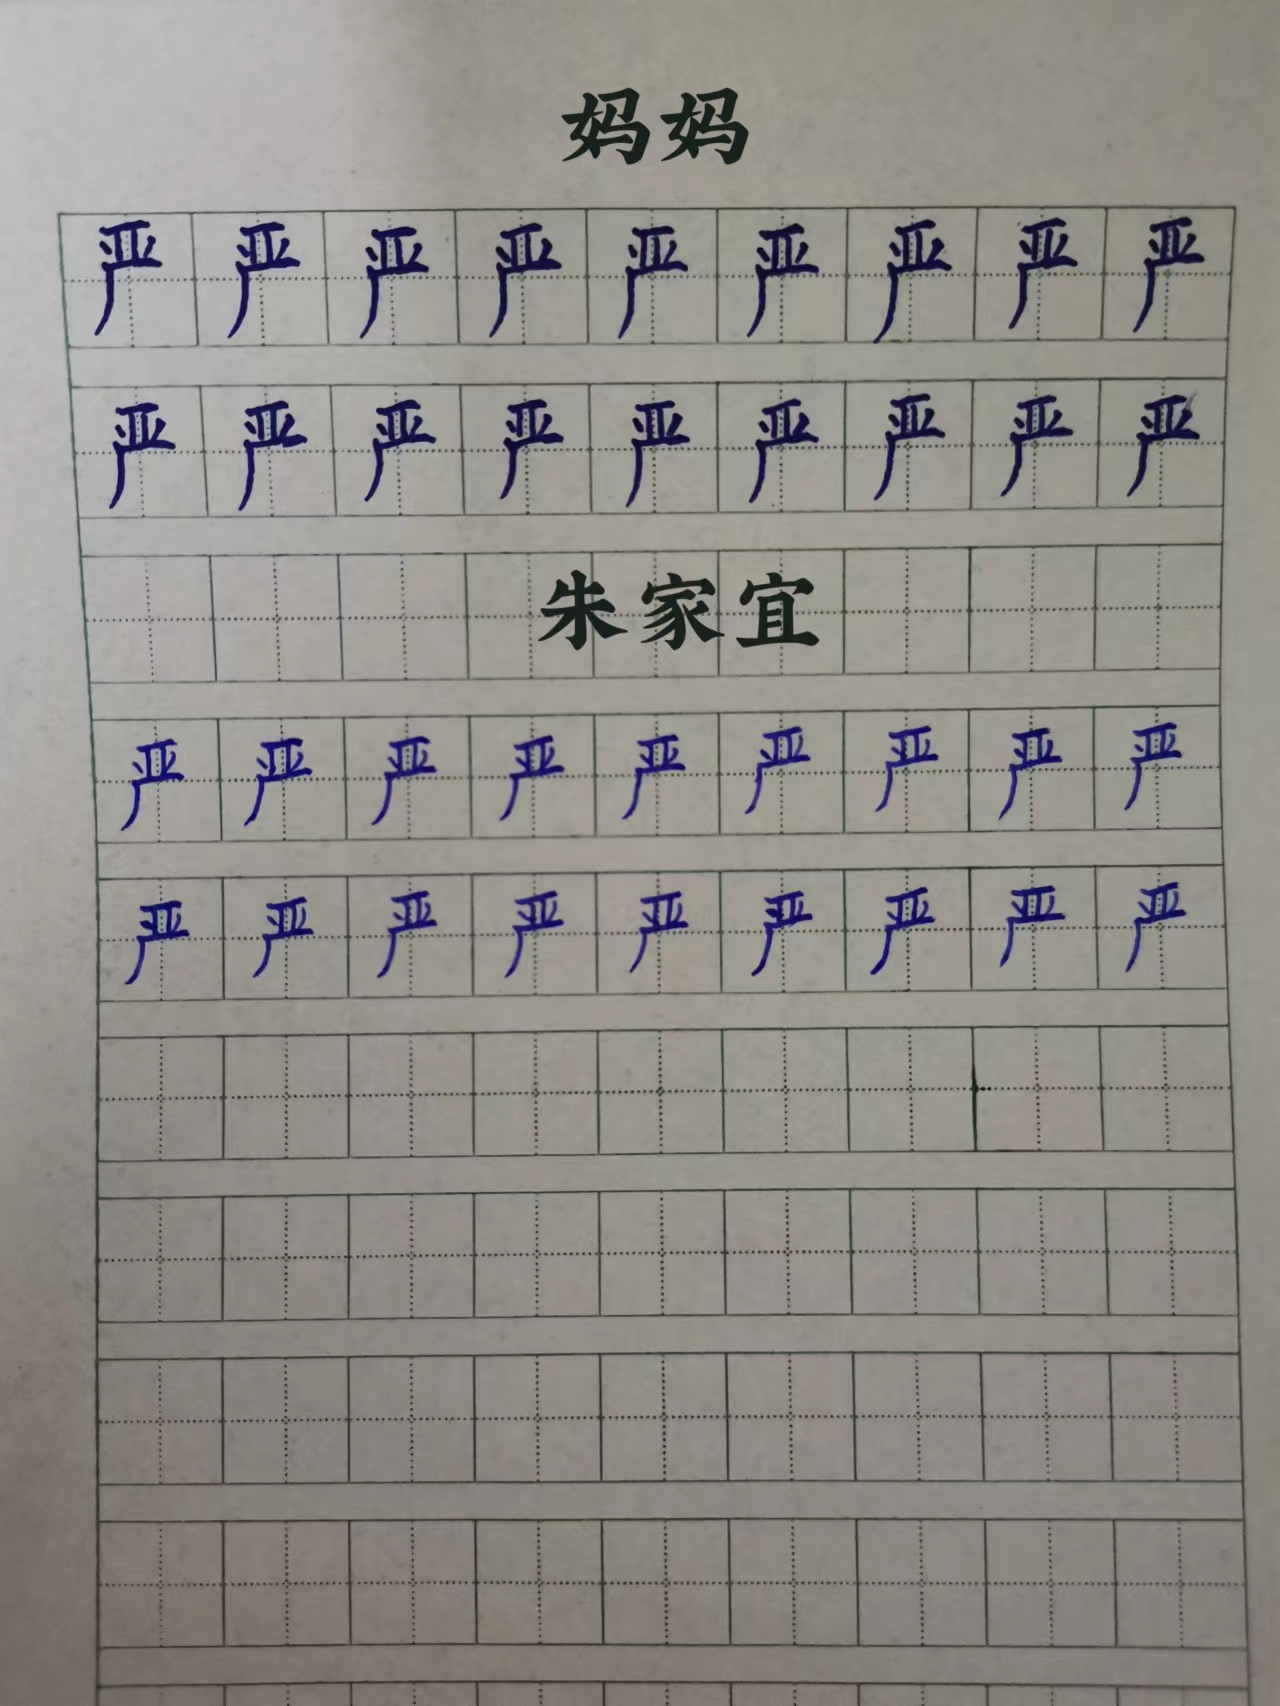 妈妈
严严严严严严严严严
严严严严严严严严严
朱家宜
严严严严严严严严严
严严严严严严严严严